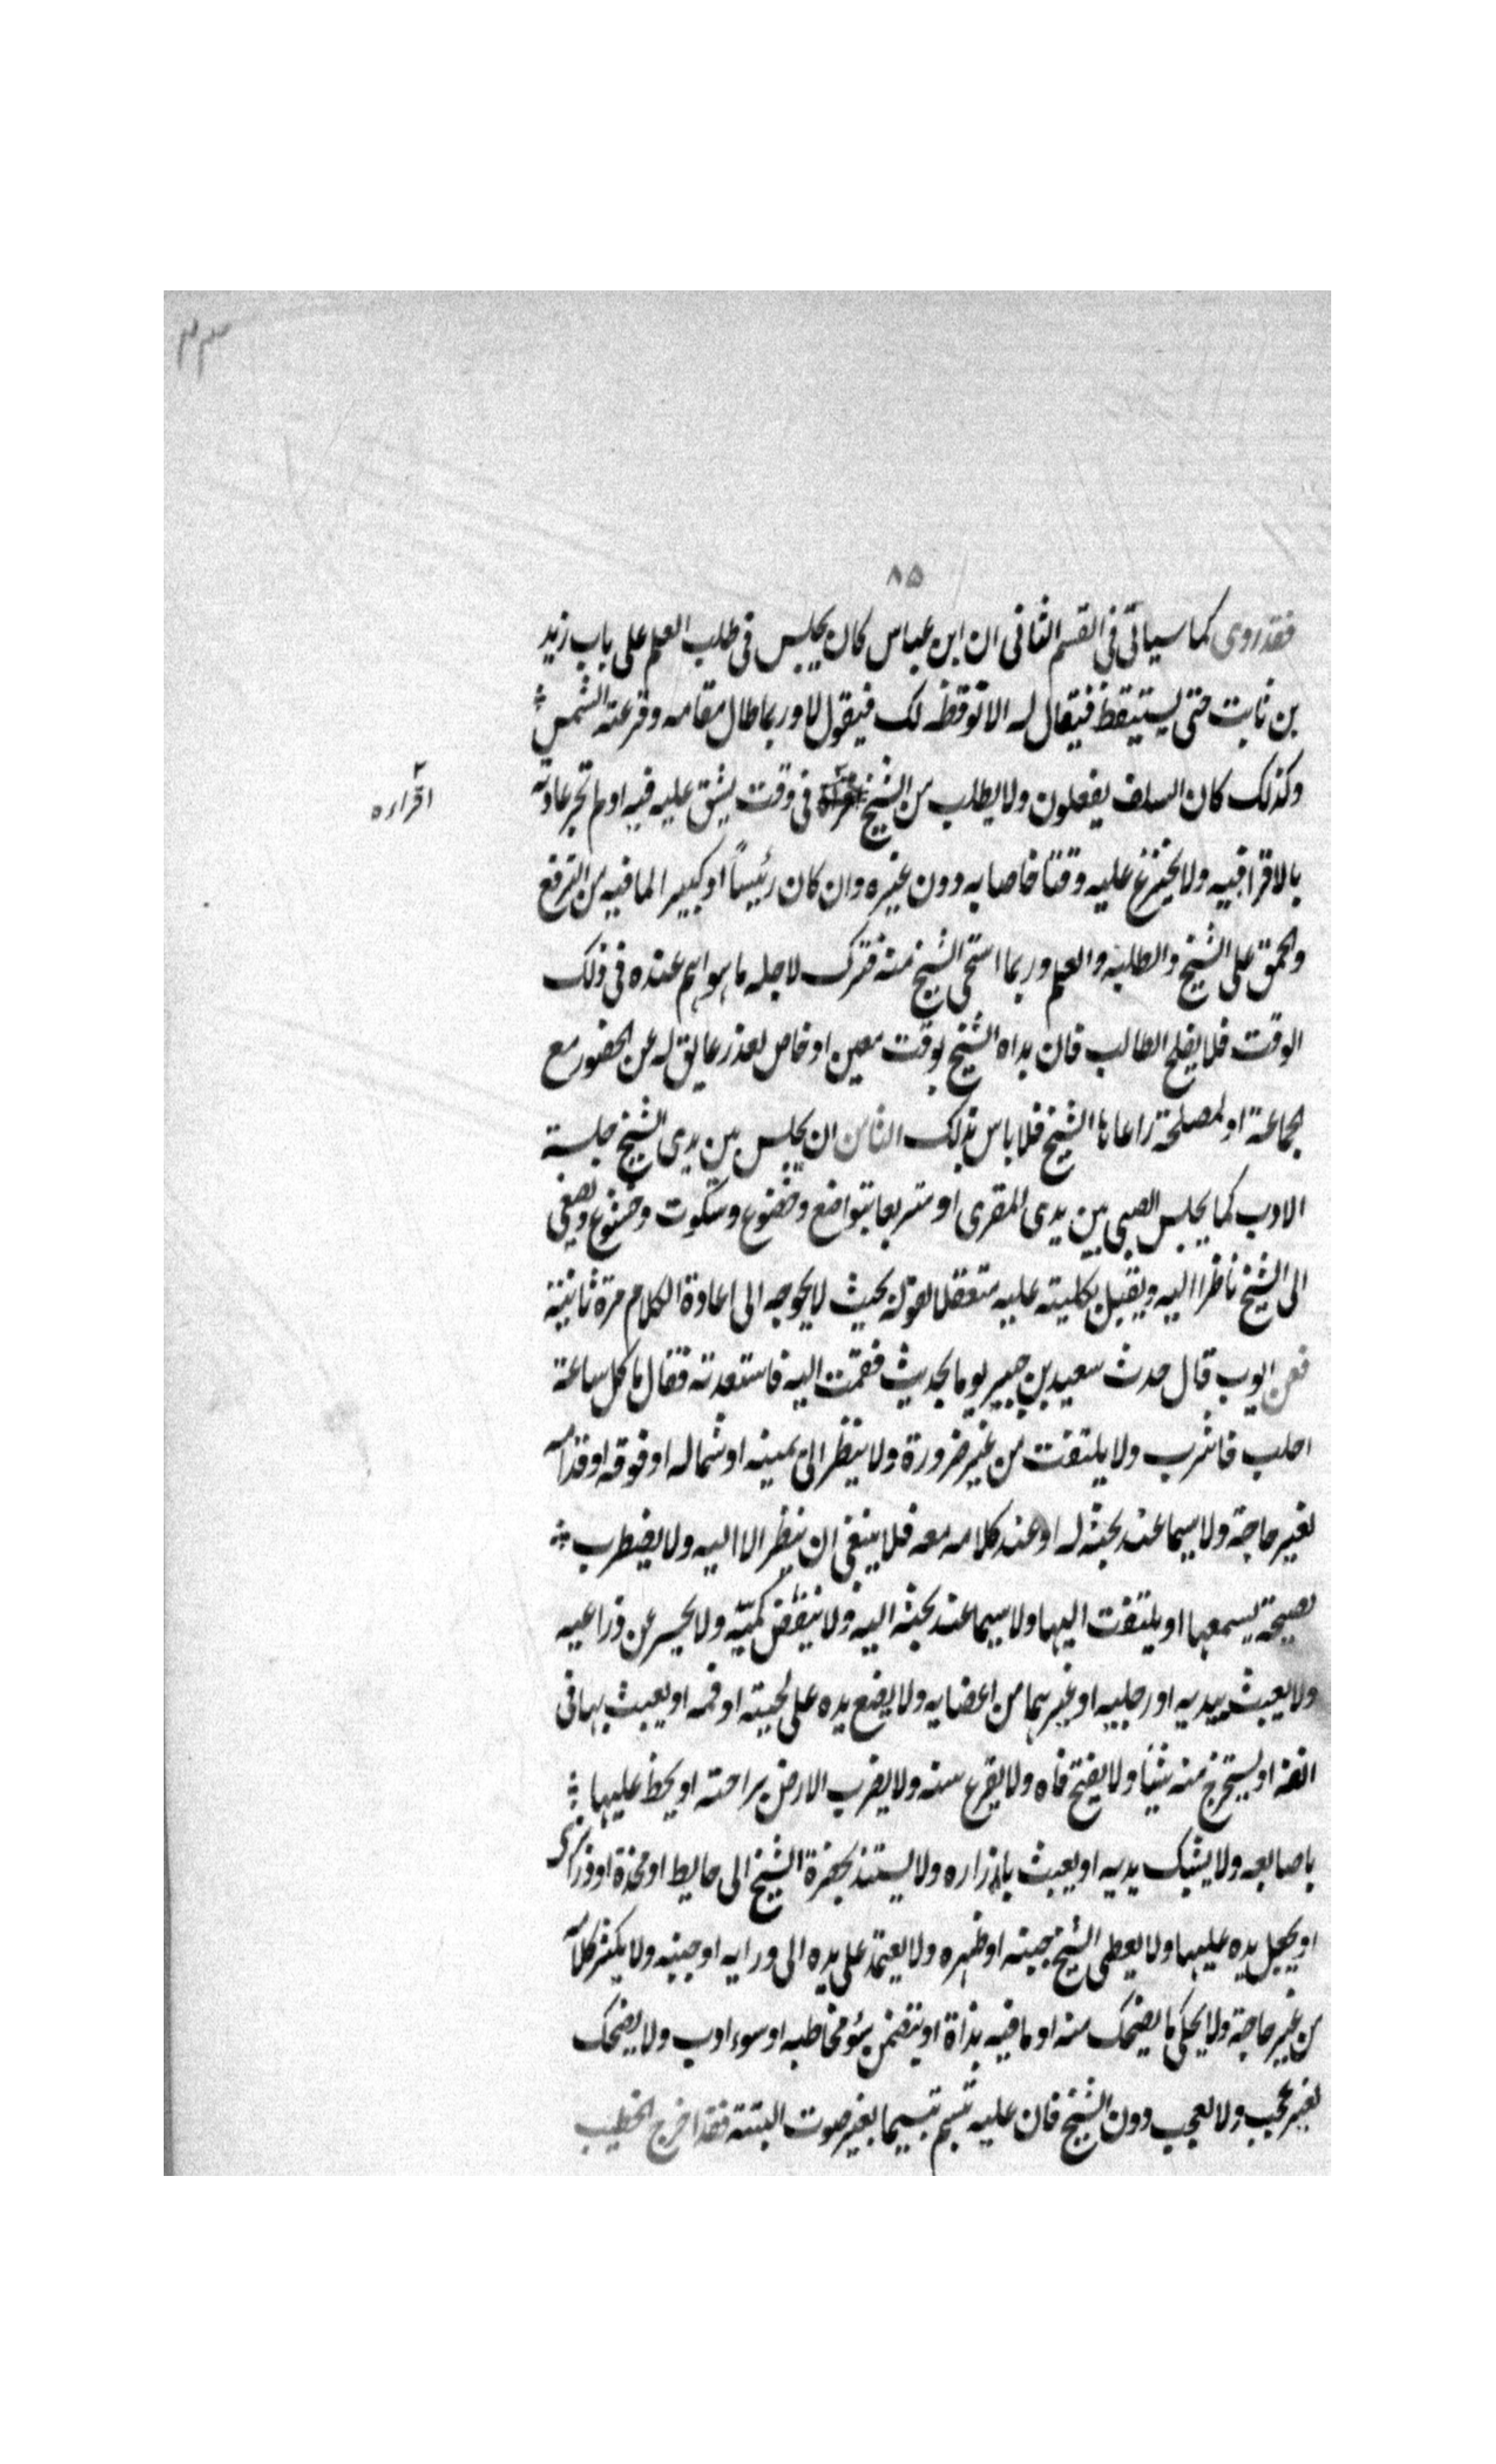 ٨٥
فقد روى كما سياتى فى القسم الثانى ان ابن عباس كان يجلس فى طلب العلم على باب زيد
بن ثابت حتى يستيقظ فيقال له الا توقظه لك فيقول لا وربما طال مقامه وقرعته الشمس
وكذلك كان السلف يفعلون ولا يطلب من الشيخ فى وقت يشق عليه فيه او لم تجر عادته
اقراءه
بالاقرا فيه ولا يخترع عليه وقتا خاصا به دون غيره وان كان رئيسا او كبير الما فيه من الترفع
والحمق على الشيخ والطلبة والعلم وربما استحى الشيخ منه فترك لاجله ما هو اهم عنده فى ذلك
الوقت فلا يفلح الطالب فان بداه الشيخ بوقت معين او خاص لعذر عايق له عن الحضور مع
الجماعة او لمصلحة راعاها الشيخ فلا باس بذلك الثامن ان يجلس بين يدى الشيخ جلسة
الادب كما يجلس الصبى بين يدى المقرى او متربعا بتواضع وخضوع وسكوت وخشوع ويصغى
الى الشيخ ناظرا اليه ويقبل بكليته عليه متعقلا لقوله بحيث لا يحوجه الى اعادة الكلام مرة ثانية
فعن ايوب قال حدث سعيد بن جبير يوما بحديث فقمت اليه فاستعدته فقال ما كل ساعة
احلب فاشرب ولا يلتفت من غير ضرورة ولا ينظر الى يمينه او شماله او فوقه او قدامه
لغير حاجة ولا سيما عند بحثه له او عند كلامه معه فلا ينبغى ان ينظر الا اليه ولا يضطرب
لصيحة يسمعها او يلتفت اليها ولا سيما عند بحثه اليه ولا ينفض كميه ولا يحسر عن ذراعيه
ولا يعبث بيديه او رجليه او غيرهما من اعضايه ولا يضع يده على لحيته او فمه او يعبث بها فى
انفه او يستخرج منه شيئا ولا يفتح فاه ولا يقرع سنه ولا يضرب الارض براحته او يخط عليها
باصابعه ولا يشبك يديه او يعبث بازراره ولا يستند بحضرة الشيخ الى حايط او مخدة او
او يجعل يده عليها ولا يعطى الشيخ جنبه او ظهره ولا يعتمد على يده الى ورايه او جنبه ولا يكثر كلامه
من غير حاجة ولا يحكى ما يضحك منه او ما فيه بذاة او يتضمن سؤ مخاطبه او سوء ادب ولا يضحك
لغير عجب ولا لعجب دون الشيخ فان عليه تبسم تبسيما بغير صوت البتة فقد اخرج الخطيب